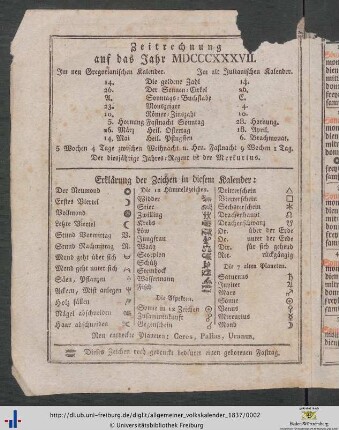 Zeitrechnung
auf das Jahr MDCCCXXXVII.
Im neu Gregorianischen Kalender. Im alt Julianischen Kalender.
14. Die goldene Zahl 14.
26. Der Sonnen-Cirkel 26.
A. Sonntags-Buchstabe C.
23. Mondzeiger 4.
10. Römer-Zinszahl 10.
5. Hornung Fastnacht Sonntag 28. Hornung.
26. März Heil. Ostertag 18. April.
14. Mai Heil. Pfingsten 6. Brachmonat.
5 Wochen 4 Tage zwischen Weihnacht u. Her. Fastnacht 9 Wochen 1 Tag.
Der diesjährige Jahres-Regent ist der Merkurius.
Erklärung der Zeichen in diesem Kalender:
Der Neumond
Erstes Viertel
Vollmond
Letzte Viertel
Stund Vormittag
Stund Nachmittag
Mond geht über sich
Mond geht unter sich
Säen, Pflanzen
Ackern, Mist anlegen
Holz fällen
Nägel abschneiden
Haar abschneiden
Die 12 Himmelszeichen.
Widder
Stier
Zwilling
Krebs
Löw
Jungfrau
Waag
Scorpion
Schütz
Steinbock
Wassermann
Fische
Die Aspekten.
Zusammenkunft
Gegenschein
Drachenhaupt
Dr. über der Erde
Dr. unter der Erde
Dir. für sich gehend
Ret. rückgängig
Die 7 alten Planeten.
Saturnus
Jupiter
Mars
Sonne
Venus
Merkurius
Mond
Neu entdeckte Planeten: Ceres, Pallas, Uranus.
Dieses Zeichen roth gedruckt bedeutet einen gebotenen Fasttag.
http://dl.ub.uni-freiburg.de/diglit/allgemeiner_volkskalender_1837/0002
© Universitätsbibliothek Freiburg